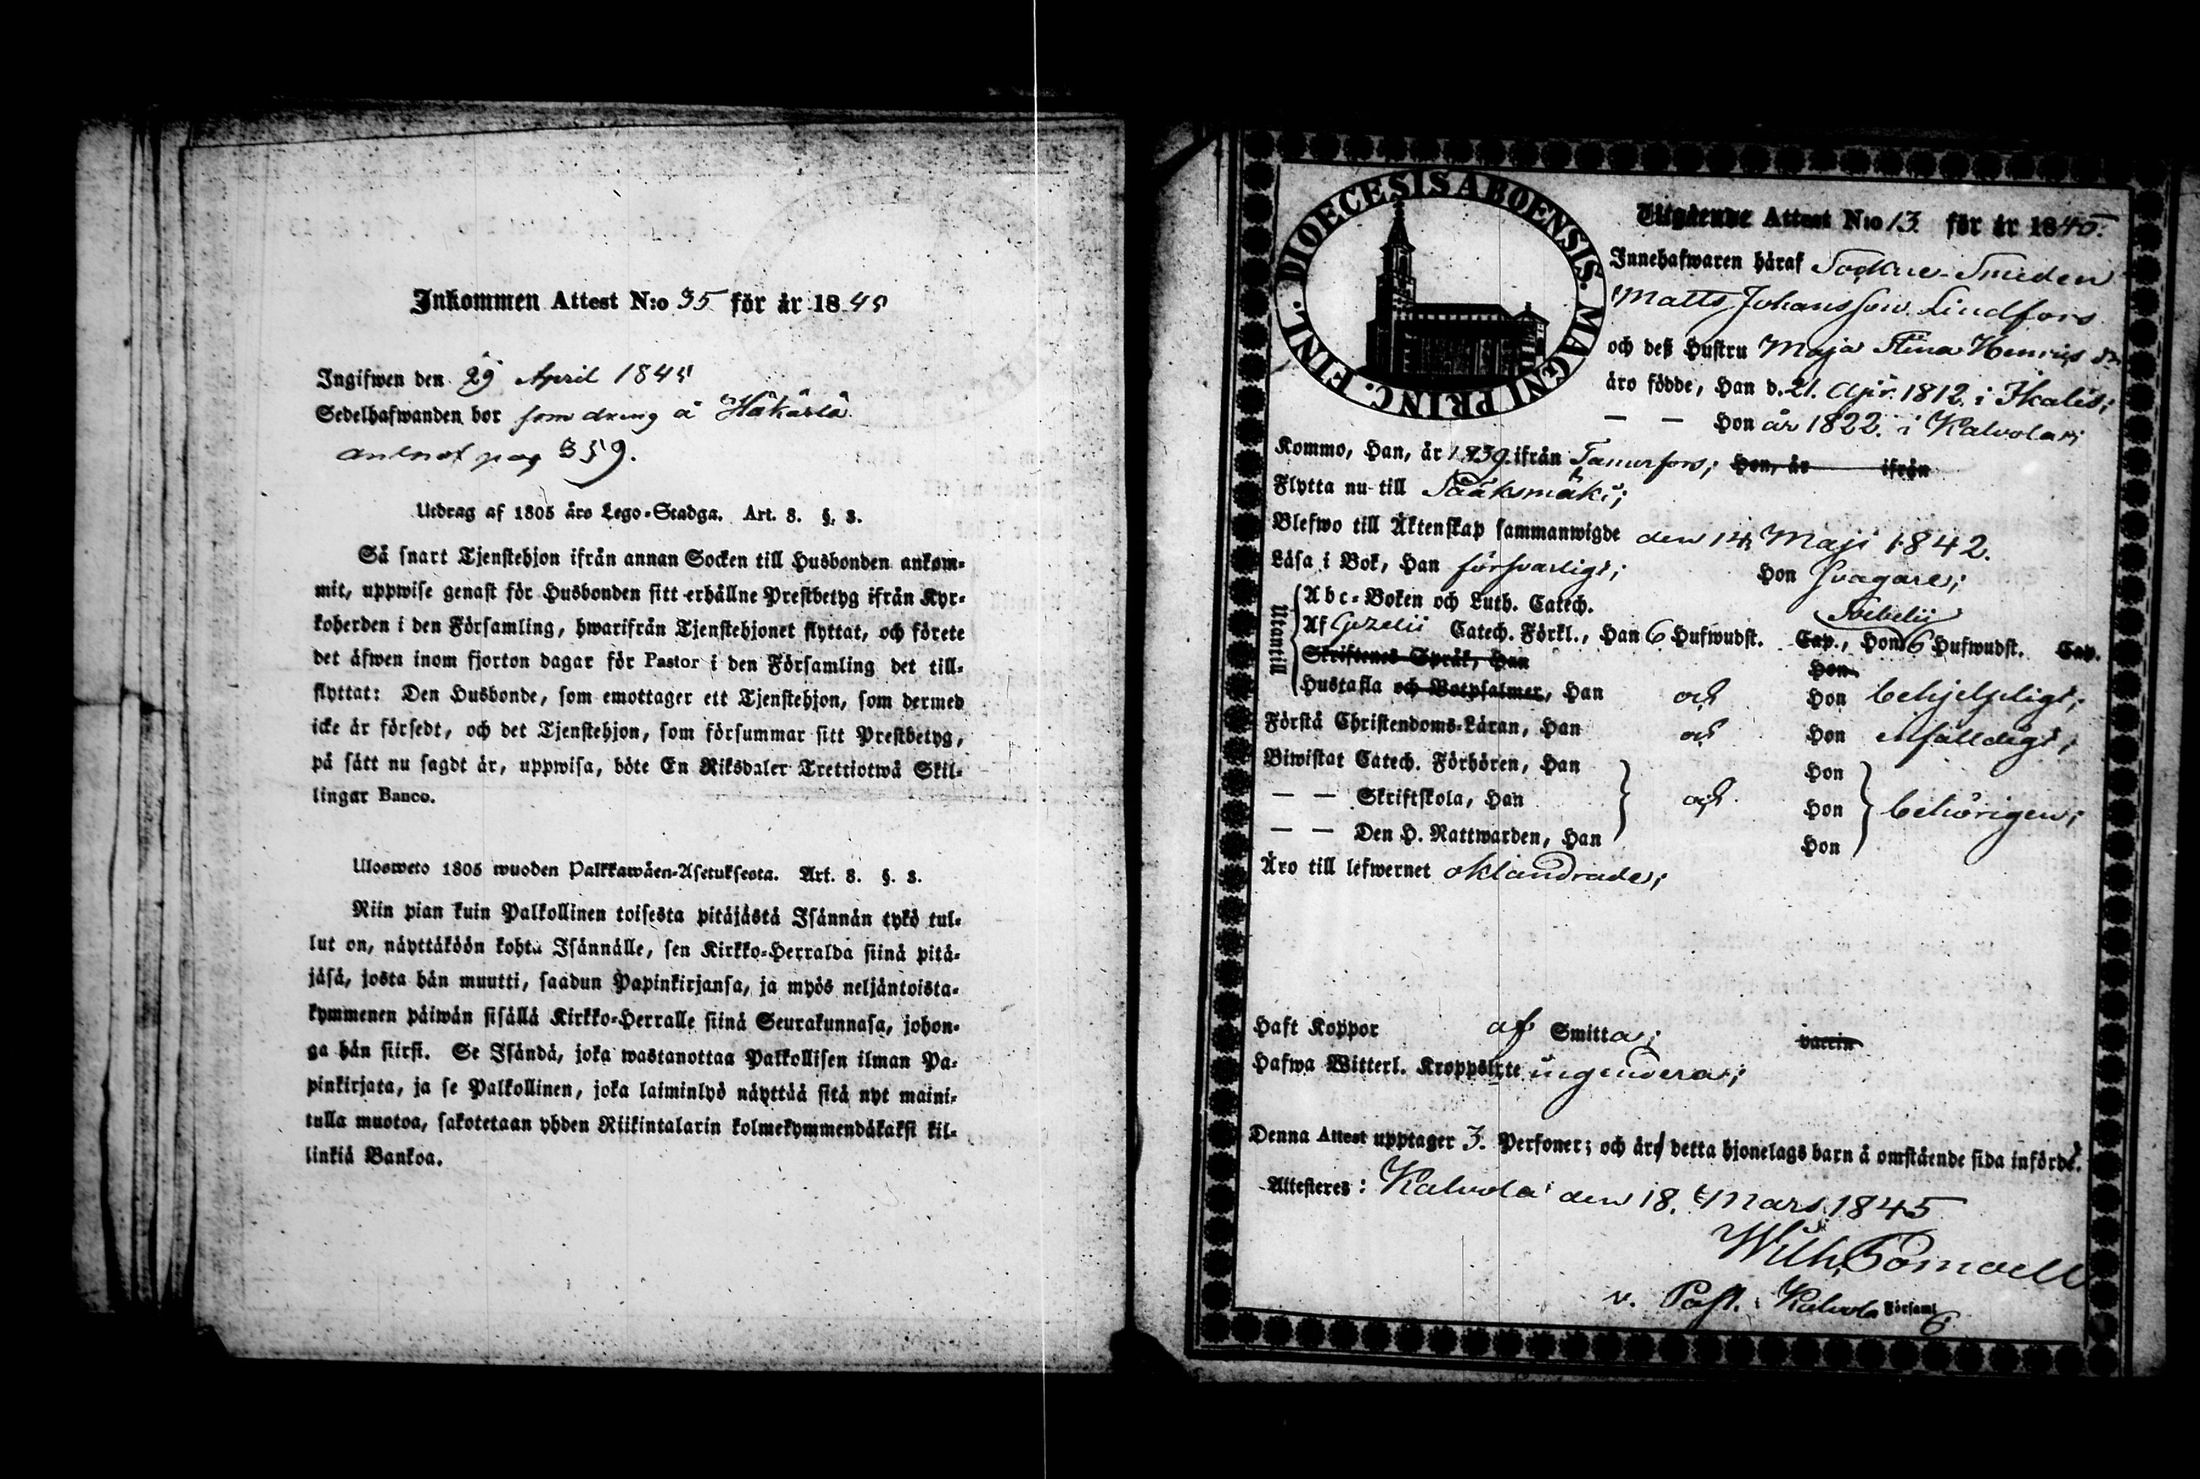 Inkommen Attest N:o 35 för år 1845
Ingifwen den 29 April 1845
Sedelhafwanden bor som dräng å Häkärlä
antnot pag 359.
Utdrag af 1805 års Lego-Stadga. Art. 8. §. 3.
Så snart Tjenstehjon ifrån annan Socken till Husbonden ankom-
mit, uppwise genast för Husbonden sitt erhållne Prestbetyg ifrån Kyr-
koherden i den Församling, hwarifrån Tjenstehjonet flyttat, och förete
det äfwen inom fjorton dagar för Pastor i den Församling det till-
flyttat: Den Husbonde, som emottager ett Tjenstehjon, som dermed
icke är försedt, och det Tjenstehjon, som försummar sitt Prestbetyg,
på sätt nu sagdt är, uppwisa, böte En Riksdaler Trettiotwå Skil-
lingar Banco.
Ulosweto 1805 wuoden Palkkawäen-Asetuksesta. Art. 8. §. 3.
Niin pian kuin Palkollinen toisesta pitäjästä Isännän tykö tul-
lut on, näyttäköön kohta Isännälle, sen Kirkko-Herralda siinä pitä-
jäsä, josta hän muutti, saadun Papinkirjansa, ja myös neljäntoista-
kymmenen päiwän sisällä Kirkko-Herralle siinä Seurakunnasa, johon-
ga hän siirsi. Se Isändä, joka wastanottaa Palkollisen ilman Pa-
pinkirjata, ja se Palkollinen, joka laiminlyö näyttää sitä nyt maini-
tulla muotoa, sakotetaan yhden Riikintalarin kolmekymmendäkaksi kil-
linkiä Bankoa.
DIOECESIS ABOENSIS. MAGNI PRINC. FINL.
Utgående Attest N:o 13. för år 1845.
Innehafwaren häraf Sockne-Smeden
Matts Johansson Lindfors
och deß Hustru Maja Stina Henricsdr
äro födde, Han d. 21. Apr. 1812. i Ikalis;
— — Hon år 1822. i Kalvola;
Kommo, Han, år 1839. ifrån Tamerfors; Hon, år ifrån
Flytta nu till Sääksmäki;
Blefwo till Äktenskap sammanwigde den 14 Maji 1842.
Läsa i Bok, Han försvarligt; Hon svagare;
Utantill
Abc-Boken och Luth. Catech.
Af Gezelii Catech. Förkl., Han 6 Hufwudst. Cap., Hon Svebelii 6 Hufwudst. Cap.
Skriftenes Språk, Han Hon
Hustafla och Botpsalmer, Han och Hon behjelpligt;
Förstå Christendoms-Läran, Han och Hon enfaldigt;
Biwistat Catech. Förhören, Han Hon
— — Skriftskola, Han och Hon behörigen;
— — Den H. Nattwarden, Han Hon
Äro till lefwernet oklandrade;
Haft Koppor af Smitta; vaccin
Hafwa Witterl. Kroppslyte ingendera;
Denna Attest upptager 3. Personer; och äro detta hjonelags barn å omstående sida införde.
Attesteres: Kalvola den 18. Mars 1845
v. Past. i Kalvola Församl